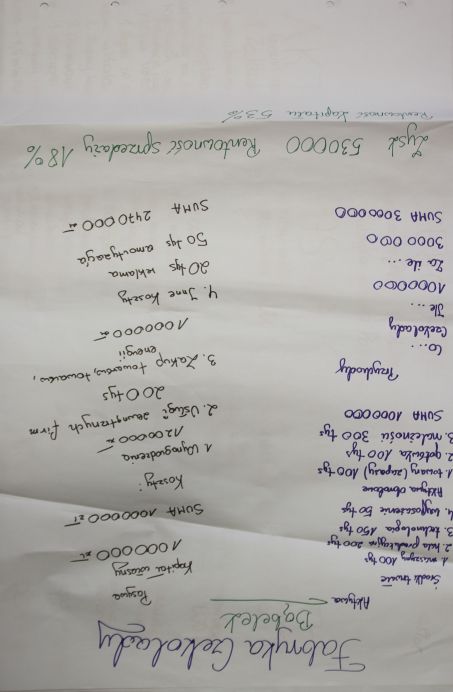 Fabryka Czekolady
Bąbelek
Aktywa
Środki trwałe
1. maszyny 100 tys
2. hala produkcyjna 200 tys
3. technologia 150 tys
4. wyposażenie 50 tys
Aktywa obrotowe
1. towary (zapasy) 100 tys
2. gotówka 100 tys
3. należności 300 tys
SUMA 1000000
Przychody
Co...
Czekolady
Ile ...
1000000
Za ile ...
3000000
SUMA 3000000
Pasywa
Kapitał własny
1000000 zł
SUMA 1000000 zł
Koszty:
1. Wynagrodzenia
1200000 zł
2. Usługi zewnętrznych firm
200 tys
3. Zakup towarów, towarów,
energii
1000000 zł
4. Inne koszty
20 tys reklama
50 tys amortyzacja
SUMA 2470000 zł
Zysk 530000 Rentowność sprzedaży 18%
Rentowność kapitału 53%